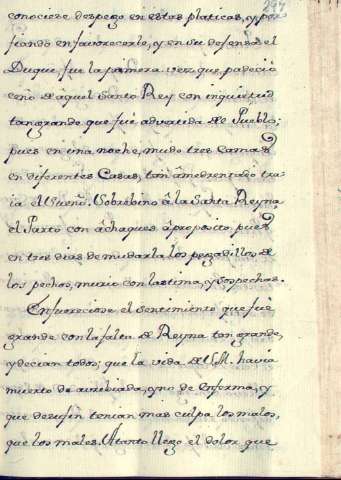 297
conociese despego en estas platicas, y por
fiando en favorecerle, y en su defensa el
Duque, fue la primera vez que padeció
ceño de aquel Santo Rey con inquietud
tan grande que fué advertida del Pueblo;
pues en una noche, mudo tres camas
en diferentes Casas, tan amedrentado tra
ia el Sueño. Sobrebino â la Santa Reyna
el Parto con âchaques âproposito, pues
en tres dias de mudarla los pezadillos de
los pechos, murio con lastima, y Sospechas.
Enfureciose el sentimiento que fué
grande con la falta de Reyna tan grande,
y decian todos; que la vida de S.M. havia
muerto de aurebiada, y no de enferma, y
que de su fin tenian mas culpa los malos,
que los males. A tanto llego el dolor que